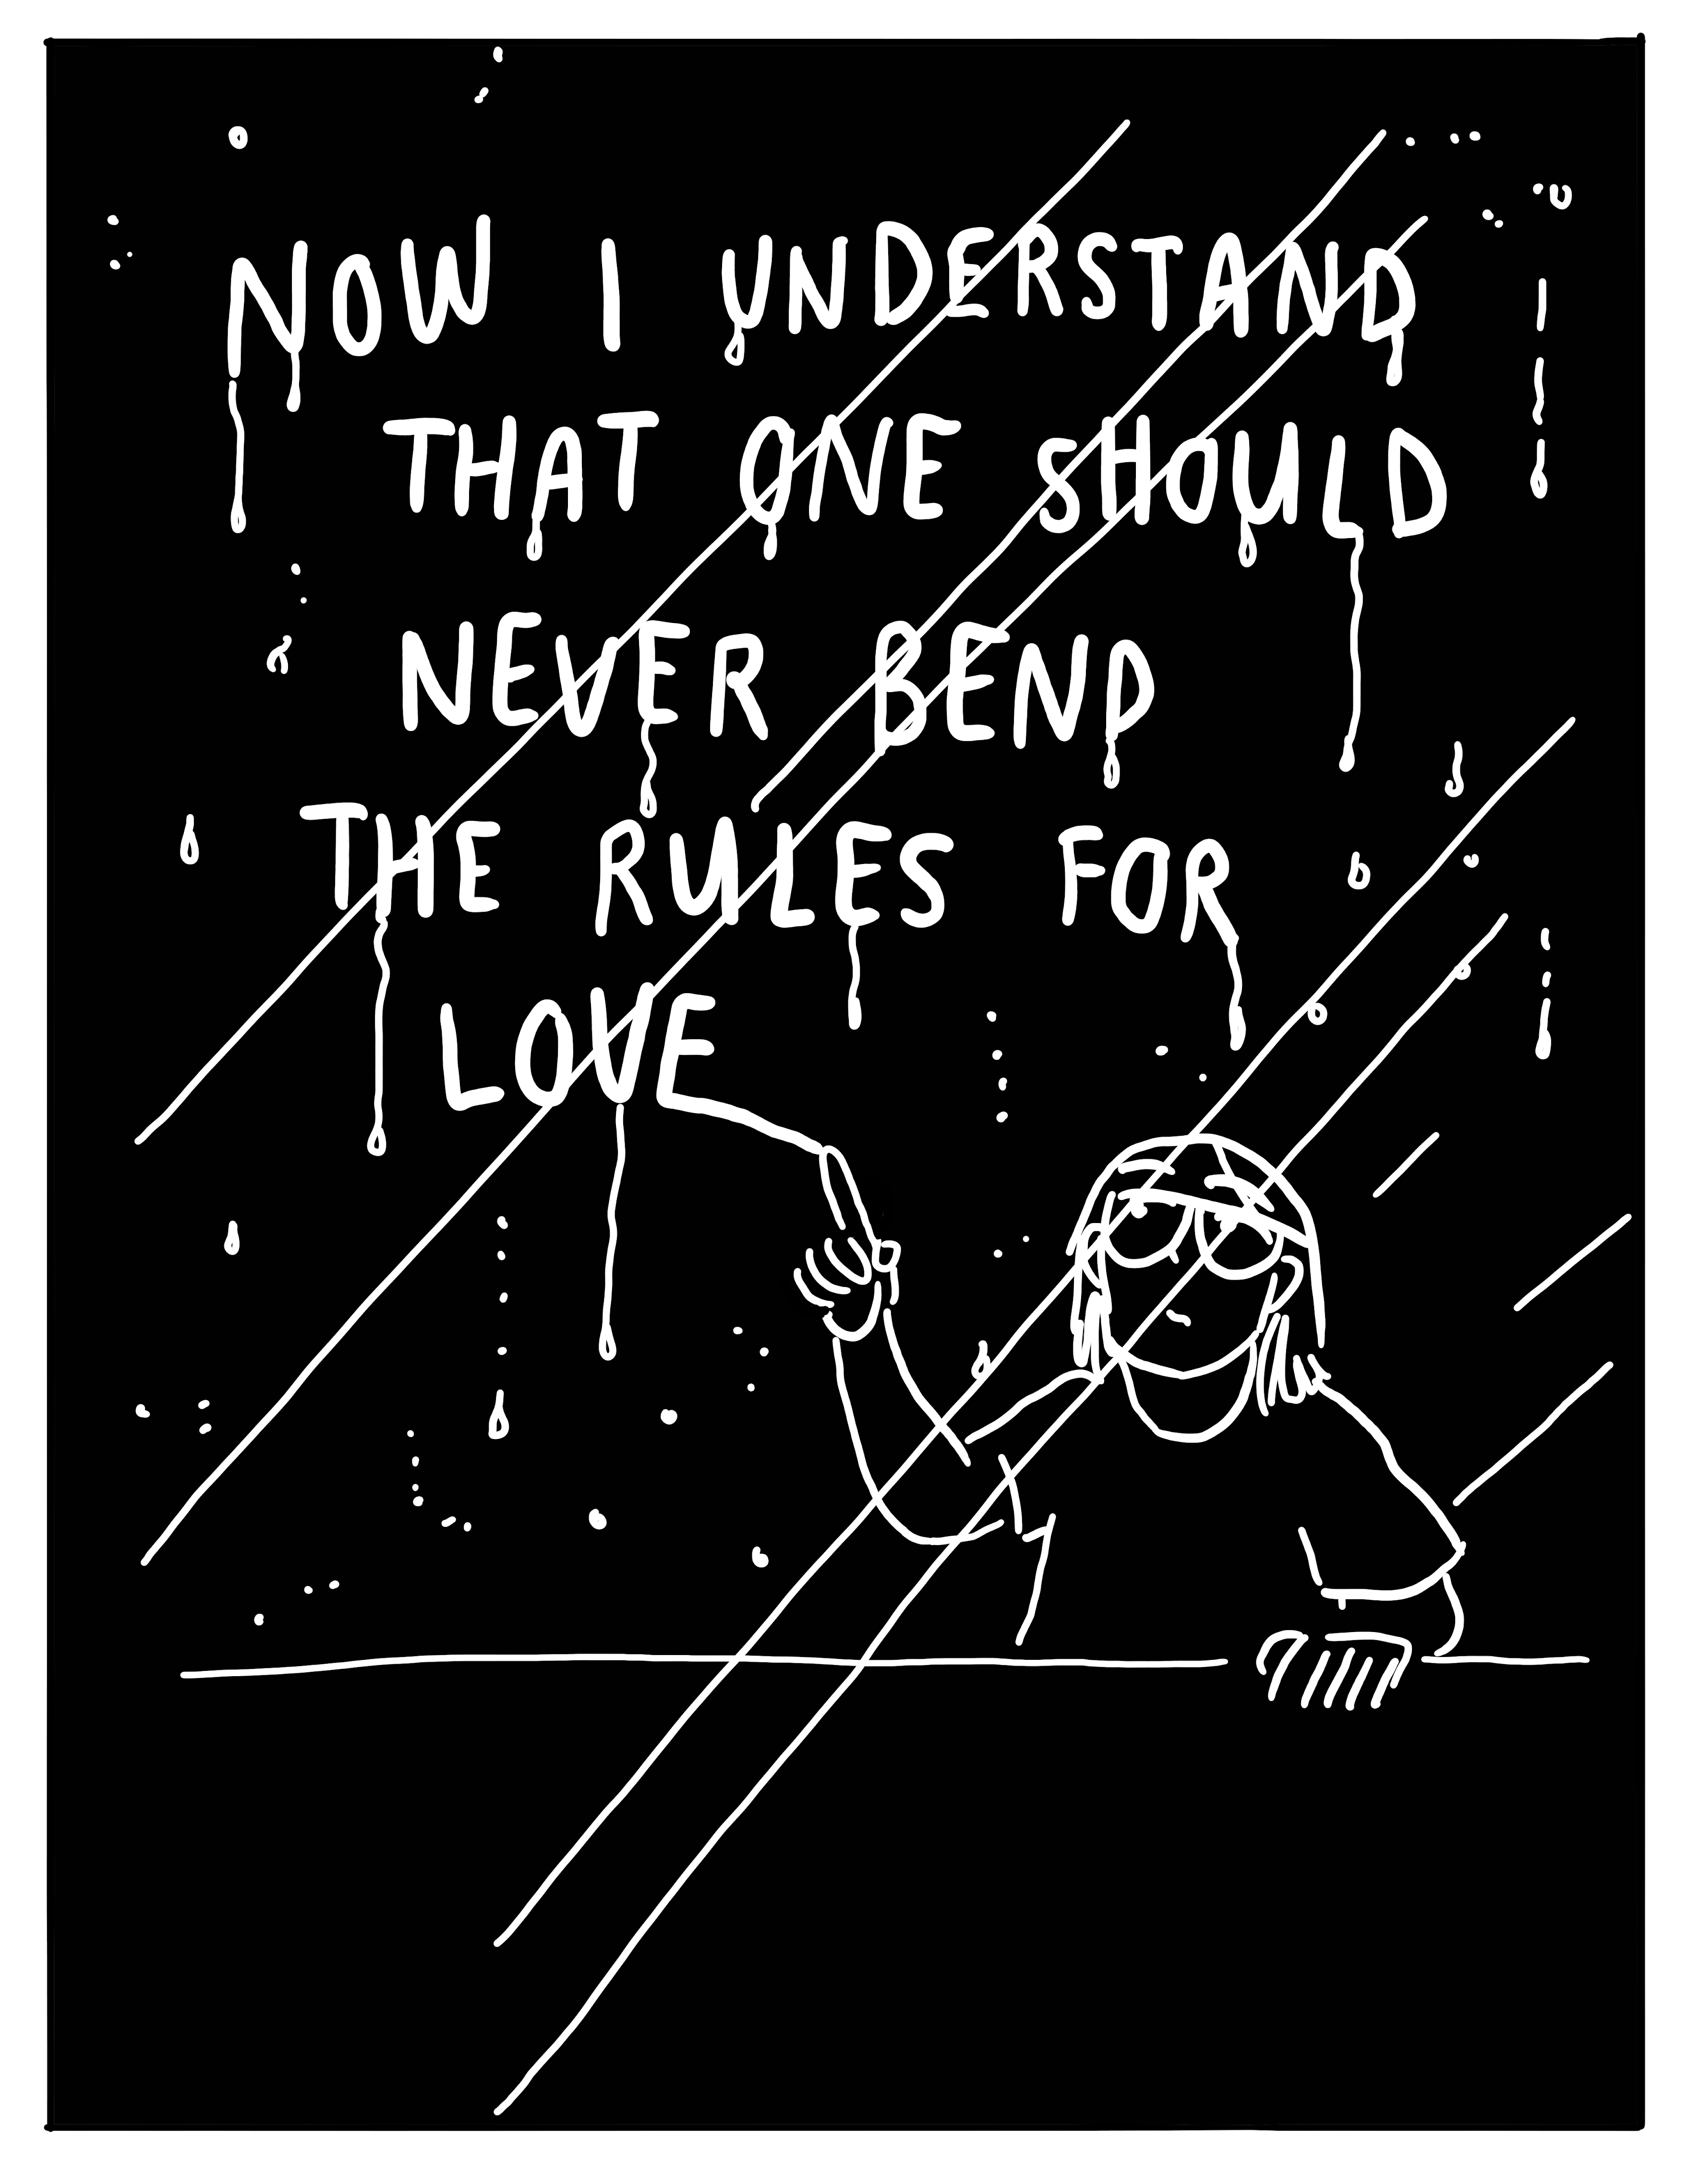 NOW I UNDERSTAND
THAT ONE SHOULD
NEVER BEND
THE RULES FOR
LOVE